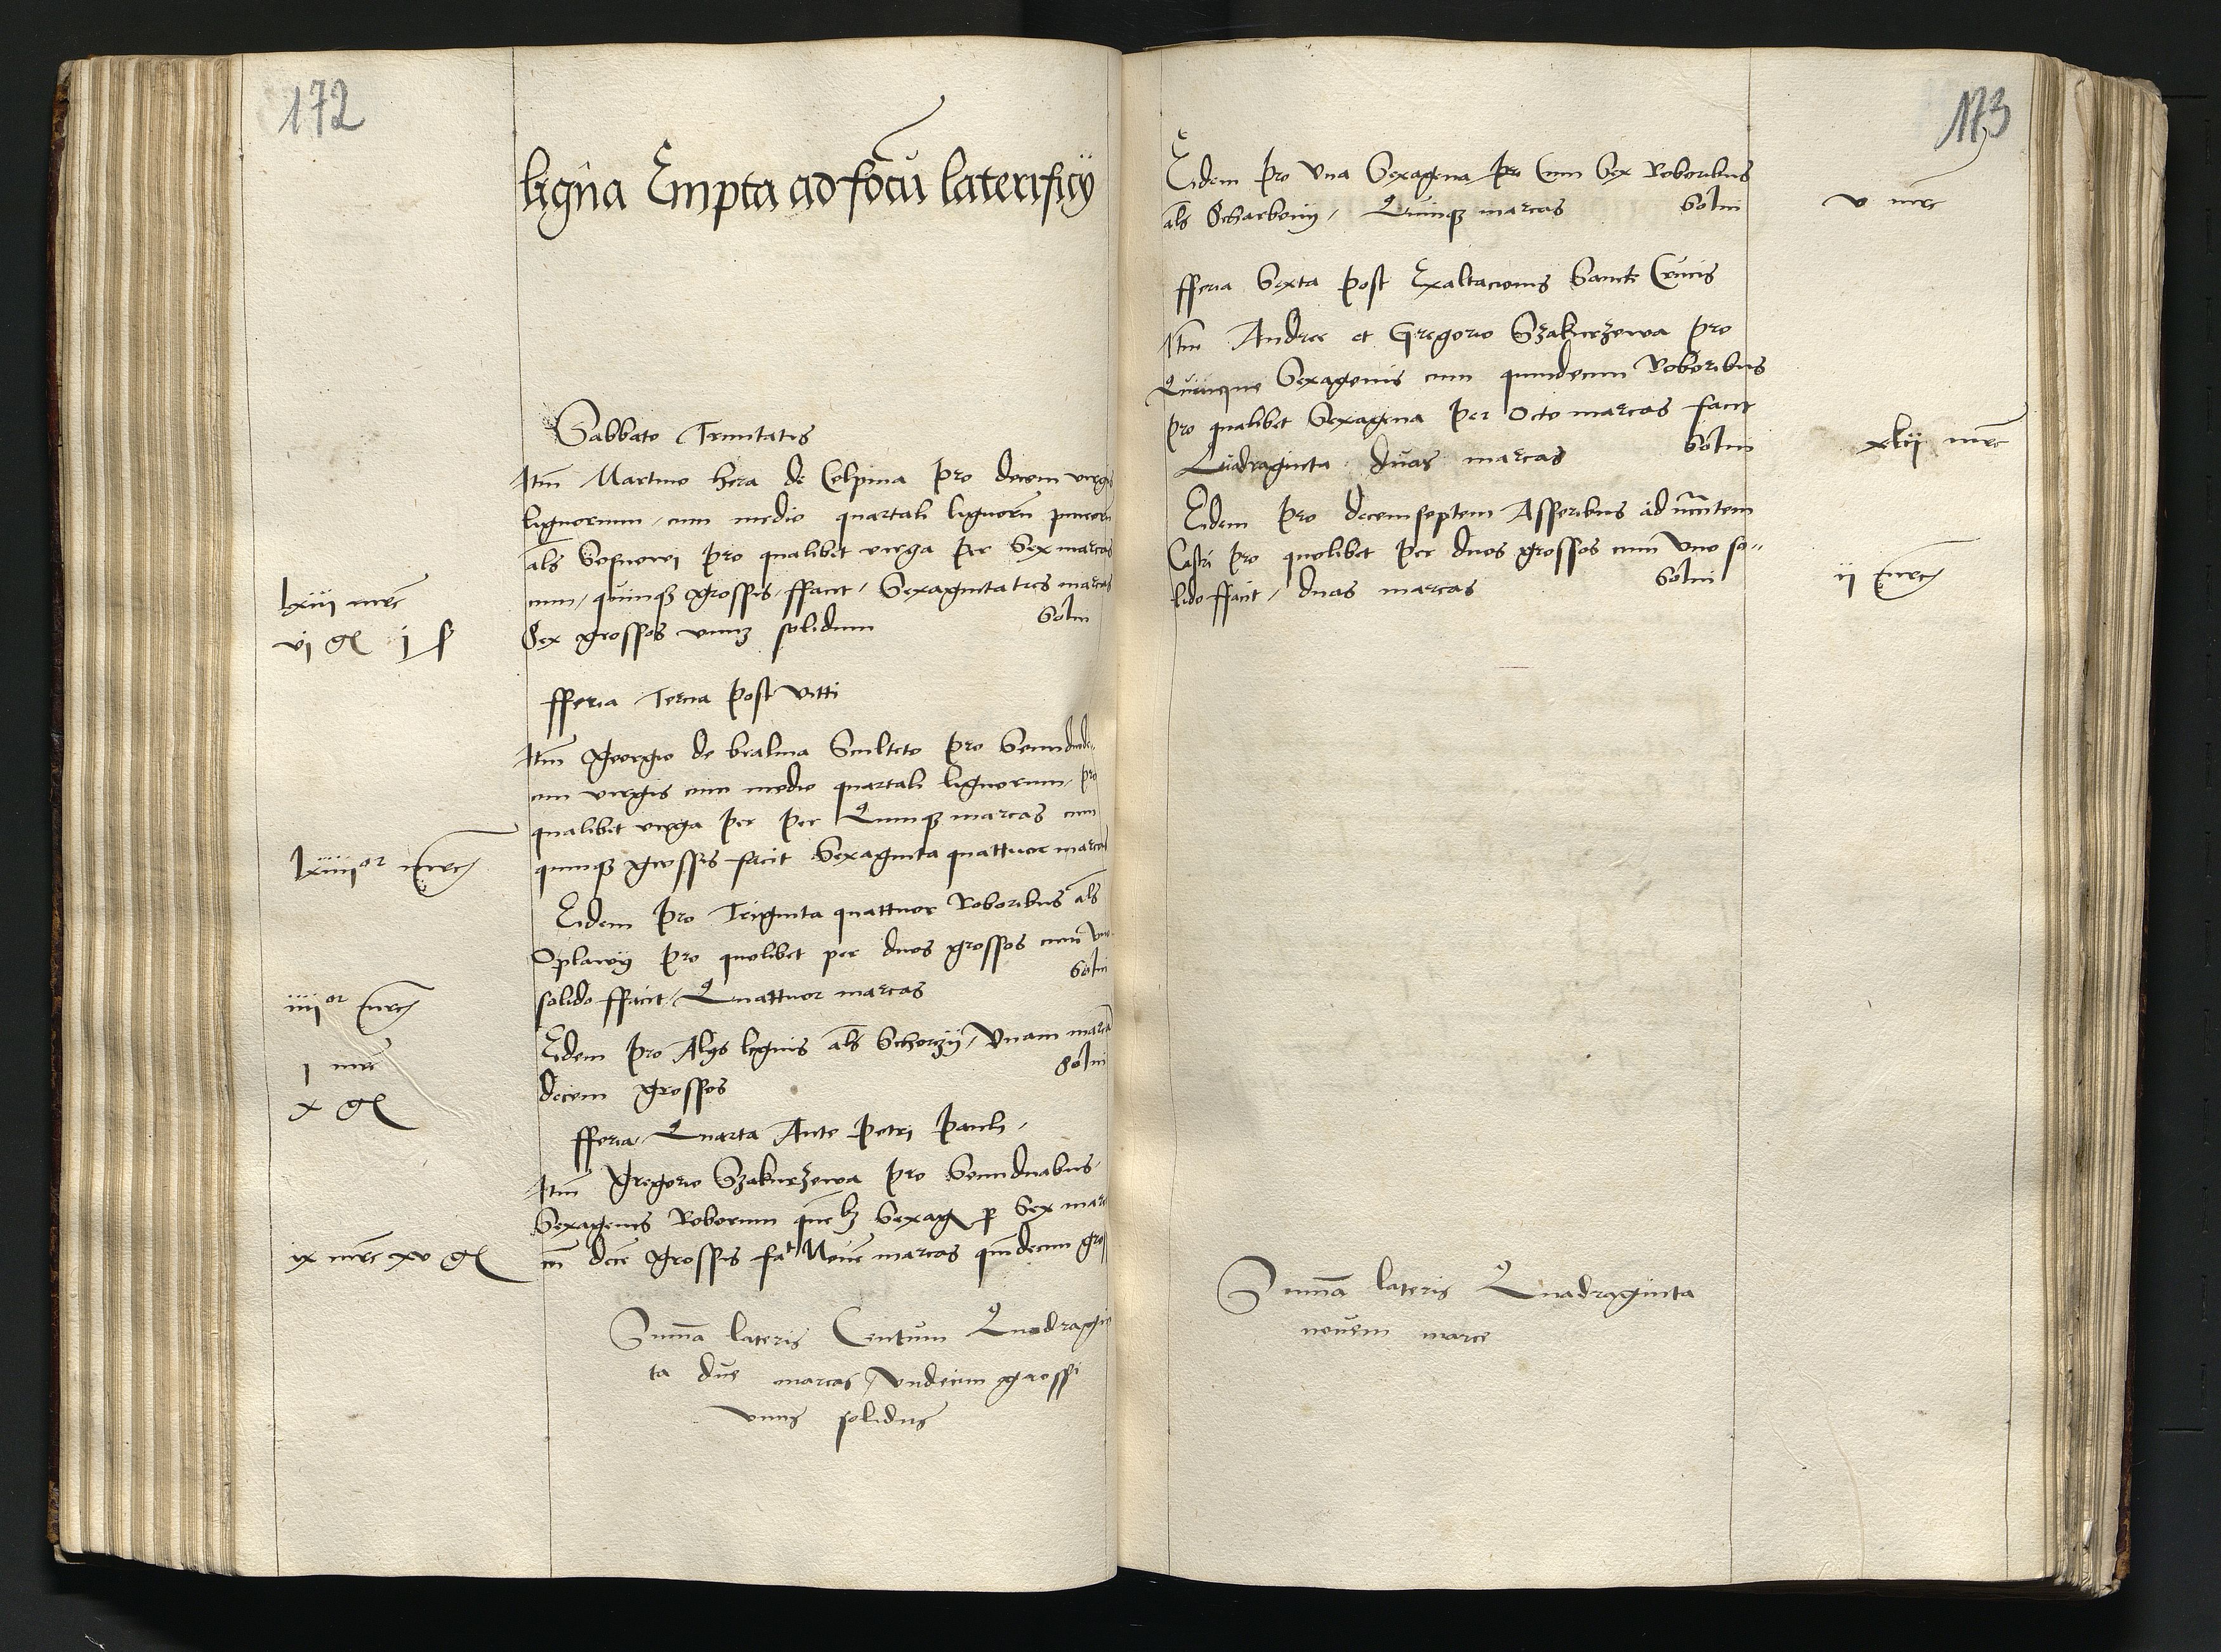 172
ligna Empta ad focū laterificij
Sabbato Trinitatis
Itm Martino hera de Celpina pro decem virgis
lignorum / cum medio quartali lignorū pineorū
als Sosnowi pro qualibet virga per Sex marcas
cum / quinqz grossis / ffacit / Sexaginta tres marcas
lxiii mrc
Sex grossos vnuz solidum Solui
vi gl j s
fferia Tercia post Viti
Itm Georgio de bralina Sculteto pro
cim virgis cum medio quartali lignorum / pro
qualibet virga per per Quinqz marcas cum
quinqz grossis facit Sexaginta quattuor marcas
lxiiiior mrc
Eidem pro Triginta quattuor Roboribus als
Oplawy pro quolibet per duos grossos cum vno
solido ffacit / Quattuor marcas Solui
iiiior mrc
Eidem pro Alijs lignis als Schorzij / Vnam marcā
j mrc
decem grossos Solui
x gl
fferia / Quarta Ante Petri Pauli /
Itm Gregorio Szakrzewa pro Cum duabus
Sexagenis Roborum sexag p Sex marc
cū decē grossis fat Nouē marcas quīdecim gros
ix mrc xv gl
Summa lateris Centum Quadragin
ta due marcas / Vndecim grossi
vnus solidus
173
Eidem pro Vna Sexagena pro Cum Sex Roboribus
als Scharbowy / Quinqz marcas Solui
v mrc
fferia Sexta post Exaltacionis Sancte Crucis
Itm Andree et Gregorio Szakrzewa pro
Quinque Sexagenis cum quindecim Roboribus
pro qualibet Sexagena per Octo marcas facit
Quadraginta duas marcas Solui
xlii mrc
Eidem pro decemseptem Asseribus ad
Castri pro quolibet per duos grossos cum Vno so-
lido ffacit / duas marcas Solui
ii mrc
Summa lateris Quadraginta
nouem marce